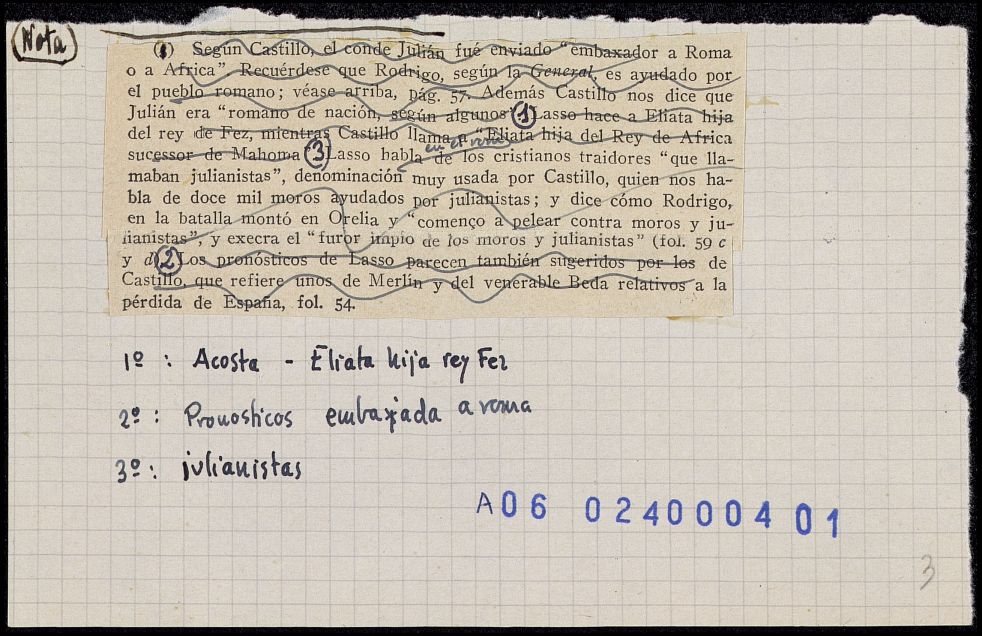 (Nota)
(1) Según Castillo, el conde Julián fué enviado “embaxador a Roma
o a Africa” Recuérdese que Rodrigo, según la General, es ayudado por
el pueblo romano; véase arriba, pág. 57. Además Castillo nos dice que
Julián era “romano de nación, según algunos” (1) Lasso hace a Eliata hija
del rey de Fez, mientras Castillo llama a “Eliata hija del Rey de Africa
en el rom
sucessor de Mahoma (3) Lasso habla de los cristianos traidores “que lla-
maban julianistas”, denominación muy usada por Castillo, quien nos ha-
bla de doce mil moros ayudados por julianistas; y dice cómo Rodrigo,
en la batalla montó en Orelia y “començo a pelear contra moros y ju-
lianistas”, y execra el “furor impio de los moros y julianistas” (fol. 59 c
y d) (2) Los pronósticos de Lasso parecen también sugeridos por los de
Castillo, que refiere unos de Merlín y del venerable Beda relativos a la
pérdida de España, fol. 54.
1º : Acosta - Eliata hija rey Fez
2º : Pronosticos embaxada a roma
3º : julianistas
A06 024000401
3